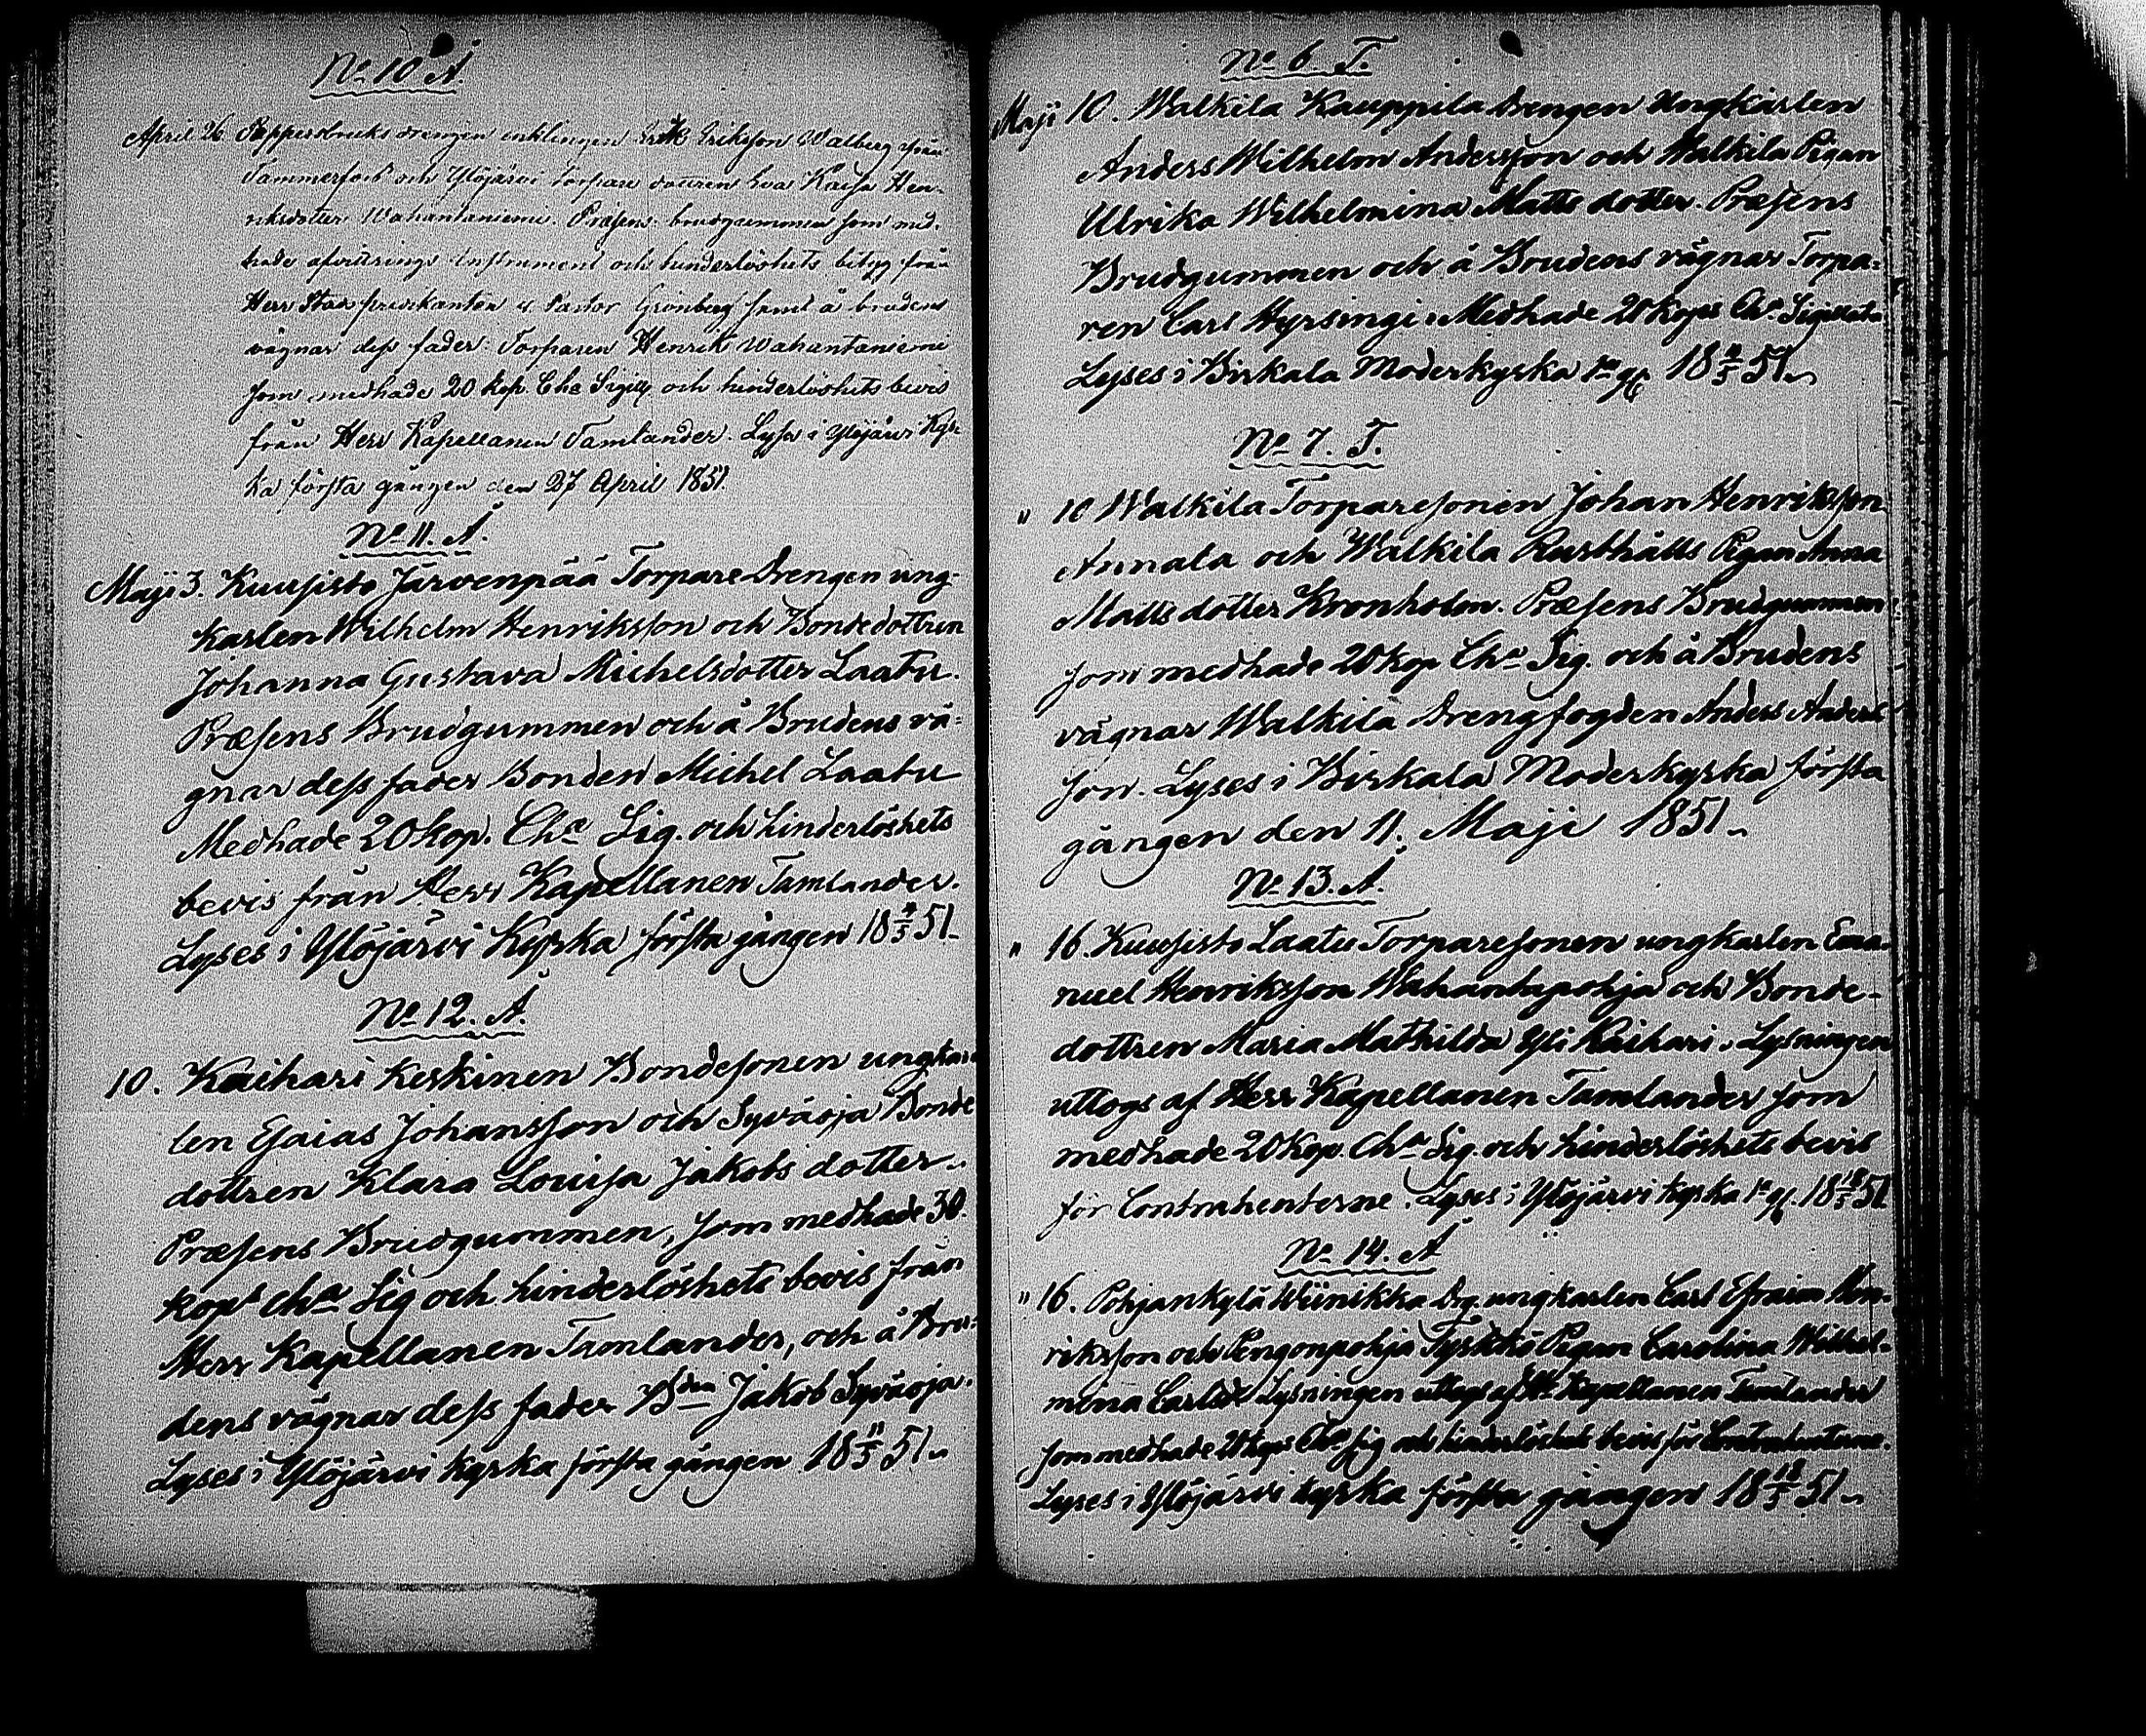 No 10 A.
April 26 Pappersbruks drengen enklingen Erik Eriksson Walberg från
Tammerfors och Ylöjärvi Torpare dottren Eva Kaisa Hen-
riksdotter Wahantaniemi. Præsens brudgummen som med-
hade afvittrings Instrument och hinderlöshets betyg från
Herr Stads predikanten Pastor Grönberg samt å brudens
vägnar dess fader Torparen Henrik Wahantaniemi
som medhade 20 kop. Cha Sigill. och hinderlöshets bevis
från Herr Kapellanen Tamlander. Lyses i Ylöjärvi Kyr-
ka första gången den 27 April 1851.
No 11. A.
Maji 3. Kuusisto Järvenpää Torpare Drengen ung-
karlen Wilhelm Henriksson och Bondedottren
Johanna Gustava Michelsdotter Laatu.
Præsens Brudgummen och å Brudens vä-
gnar dess fader Bonden Michel Laatu
Medhade 20 kop. Cha Sig. och hinderlöshets
bevis från Herr Kapellanen Tamlander.
Lyses i Ylöjärvi Kyrka första gången 18 4/5 51.
No 12. A.
10. Kaihari Keskinen Bondesonen ungkar-
len Esaias Johansson och Syväoja Bonde
dottren Klara Louisa Jakobs dotter.
Præsens Brudgummen, som medhade 30.
kops Cha Sig och hinderlöshets bevis från
Herr Kapellanen Tamlander, och å Bru-
dens vägnar dess fader Bden Jakob Syväoja.
Lyses i Ylöjärvi Kyrka första gången 18 11/5 51.
No 6. T.
Maji 10. Walkila Kauppila Drengen Ungkarlen
Anders Wilhelm Andersson och Walkila Pigan
Ulrika Wilhelmina Matts dotter. Præsens
Brudgummen och å Brudens vägnar Torpa-
ren Carl Hyrsingi. Medhade 20 kops Cha Sigillata
Lyses i Birkala Moderkyrka 1a gg 18 11/5 51.
No 7. T.
" 10 Walkila Torparesonen Johan Henriksson
Annala och Walkila Rusthålls Pigan Anna
Matts dotter Kronholm. Præsens Brudgummen
som medhade 20 kop Cha Sig. och å Brudens
vägnar Walkila Drengfogden Anders Anders-
son. Lyses i Birkala Moderkyrka första
gången den 11. Maji 1851.
No 13. A.
" 16. Kuusisto Laatu Torparesonen ungkarlen Ema-
nuel Henriksson Wahantapohja och Bonde-
dottren Maria Mathilda Yli Kaihari. Lysningen
uttogs af Herr Kapellanen Tamlander som
medhade 20 kop. Cha Sig. och hinderlöshets bevis
för Contrahenterne. Lyses i Ylöjärvi kyrka 1a gg. 18 18/5 51
No 14. A
" 16. Pohjankylä Wiinikka Drg. ungkarlen Carl Efraim Hen-
riksson och Pengonpohja Tyrkkö Pigan Carolina Wilhel-
mina Carlsdr Lysningen uttogs af Hr Kapellanen Tamlander
som medhade 20 kops Cha Sig och hinderlöshets bevis för Contrahenterne.
Lyses i Ylöjärvi kyrka första gången 18 18/5 51.